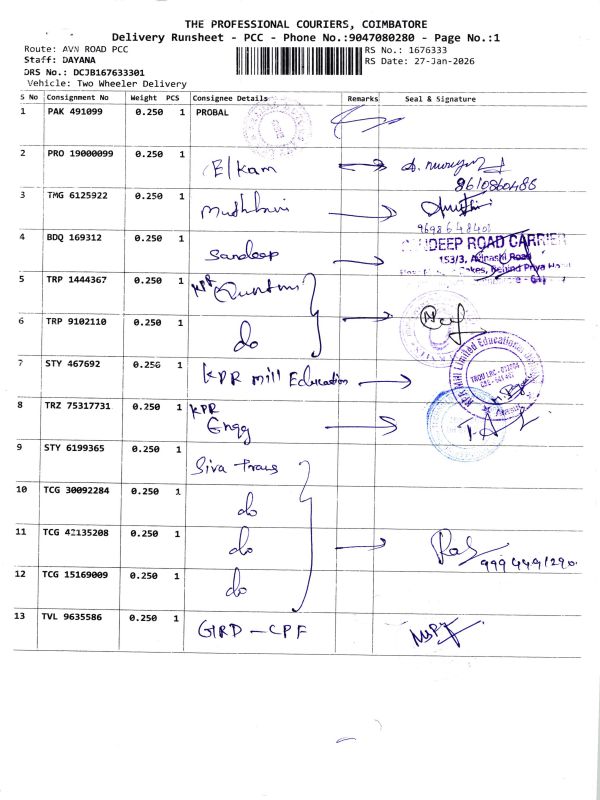 THE PROFESSIONAL COURIERS, COIMBATORE
Delivery Runsheet - PCC - Phone No.:9047080280 - Page No.:1
Route: AVN ROAD PCC
RS No.: 1676333
Staff: DAYANA
RS Date: 27-Jan-2026
DRS No.: DCJB167633301
Vehicle: Two Wheeler Delivery
S No Consignment No Weight PCS Consignee Details Remarks Seal & Signature
1 PAK 491099 0.250 1 PROBAL
2 PRO 19000099 0.250 1 Elkam
8610860486
3 TMG 6125922 0.250 1
9698648408
4 BDQ 169312 0.250 1 Sandeep
SANDEEP ROAD CARRIER
153/3, Avinashi Road
5 TRP 1444367 0.250 1 KPR
6 TRP 9102110 0.250 1 do
7 STY 467692 0.250 1 KPR mill Education
KPR Mill Limited Educational
8 TRZ 75317731 0.250 1 KPR
Engg
9 STY 6199365 0.250 1 Siva Trans
10 TCG 30092284 0.250 1 do
11 TCG 42135208 0.250 1 do
9994491290
12 TCG 15169009 0.250 1 do
13 TVL 9635586 0.250 1 GIRD - CPF